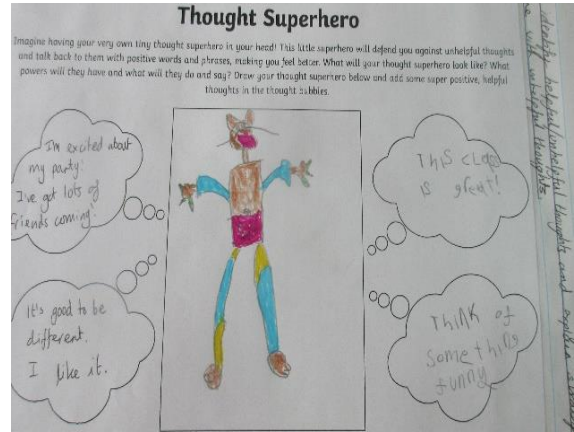 Thought Superhero
Imagine having your very own tiny thought superhero in your head! This little superhero will defend you against unhelpful thoughts
and talk back to them with positive words and phrases, making you feel better. What will your thought superhero look like? What
powers will they have and what will they do and say? Draw your thought superhero below and add some super positive, helpful
thoughts in the thought bubbles.
I'm excited about
my party.
I've got lots of
friends coming!
THIS CLASS
is great!
It's good to be
different.
I like it.
Think of
something
funny
identify helpful/unhelpful thoughts and explain
with unhelpful thoughts.